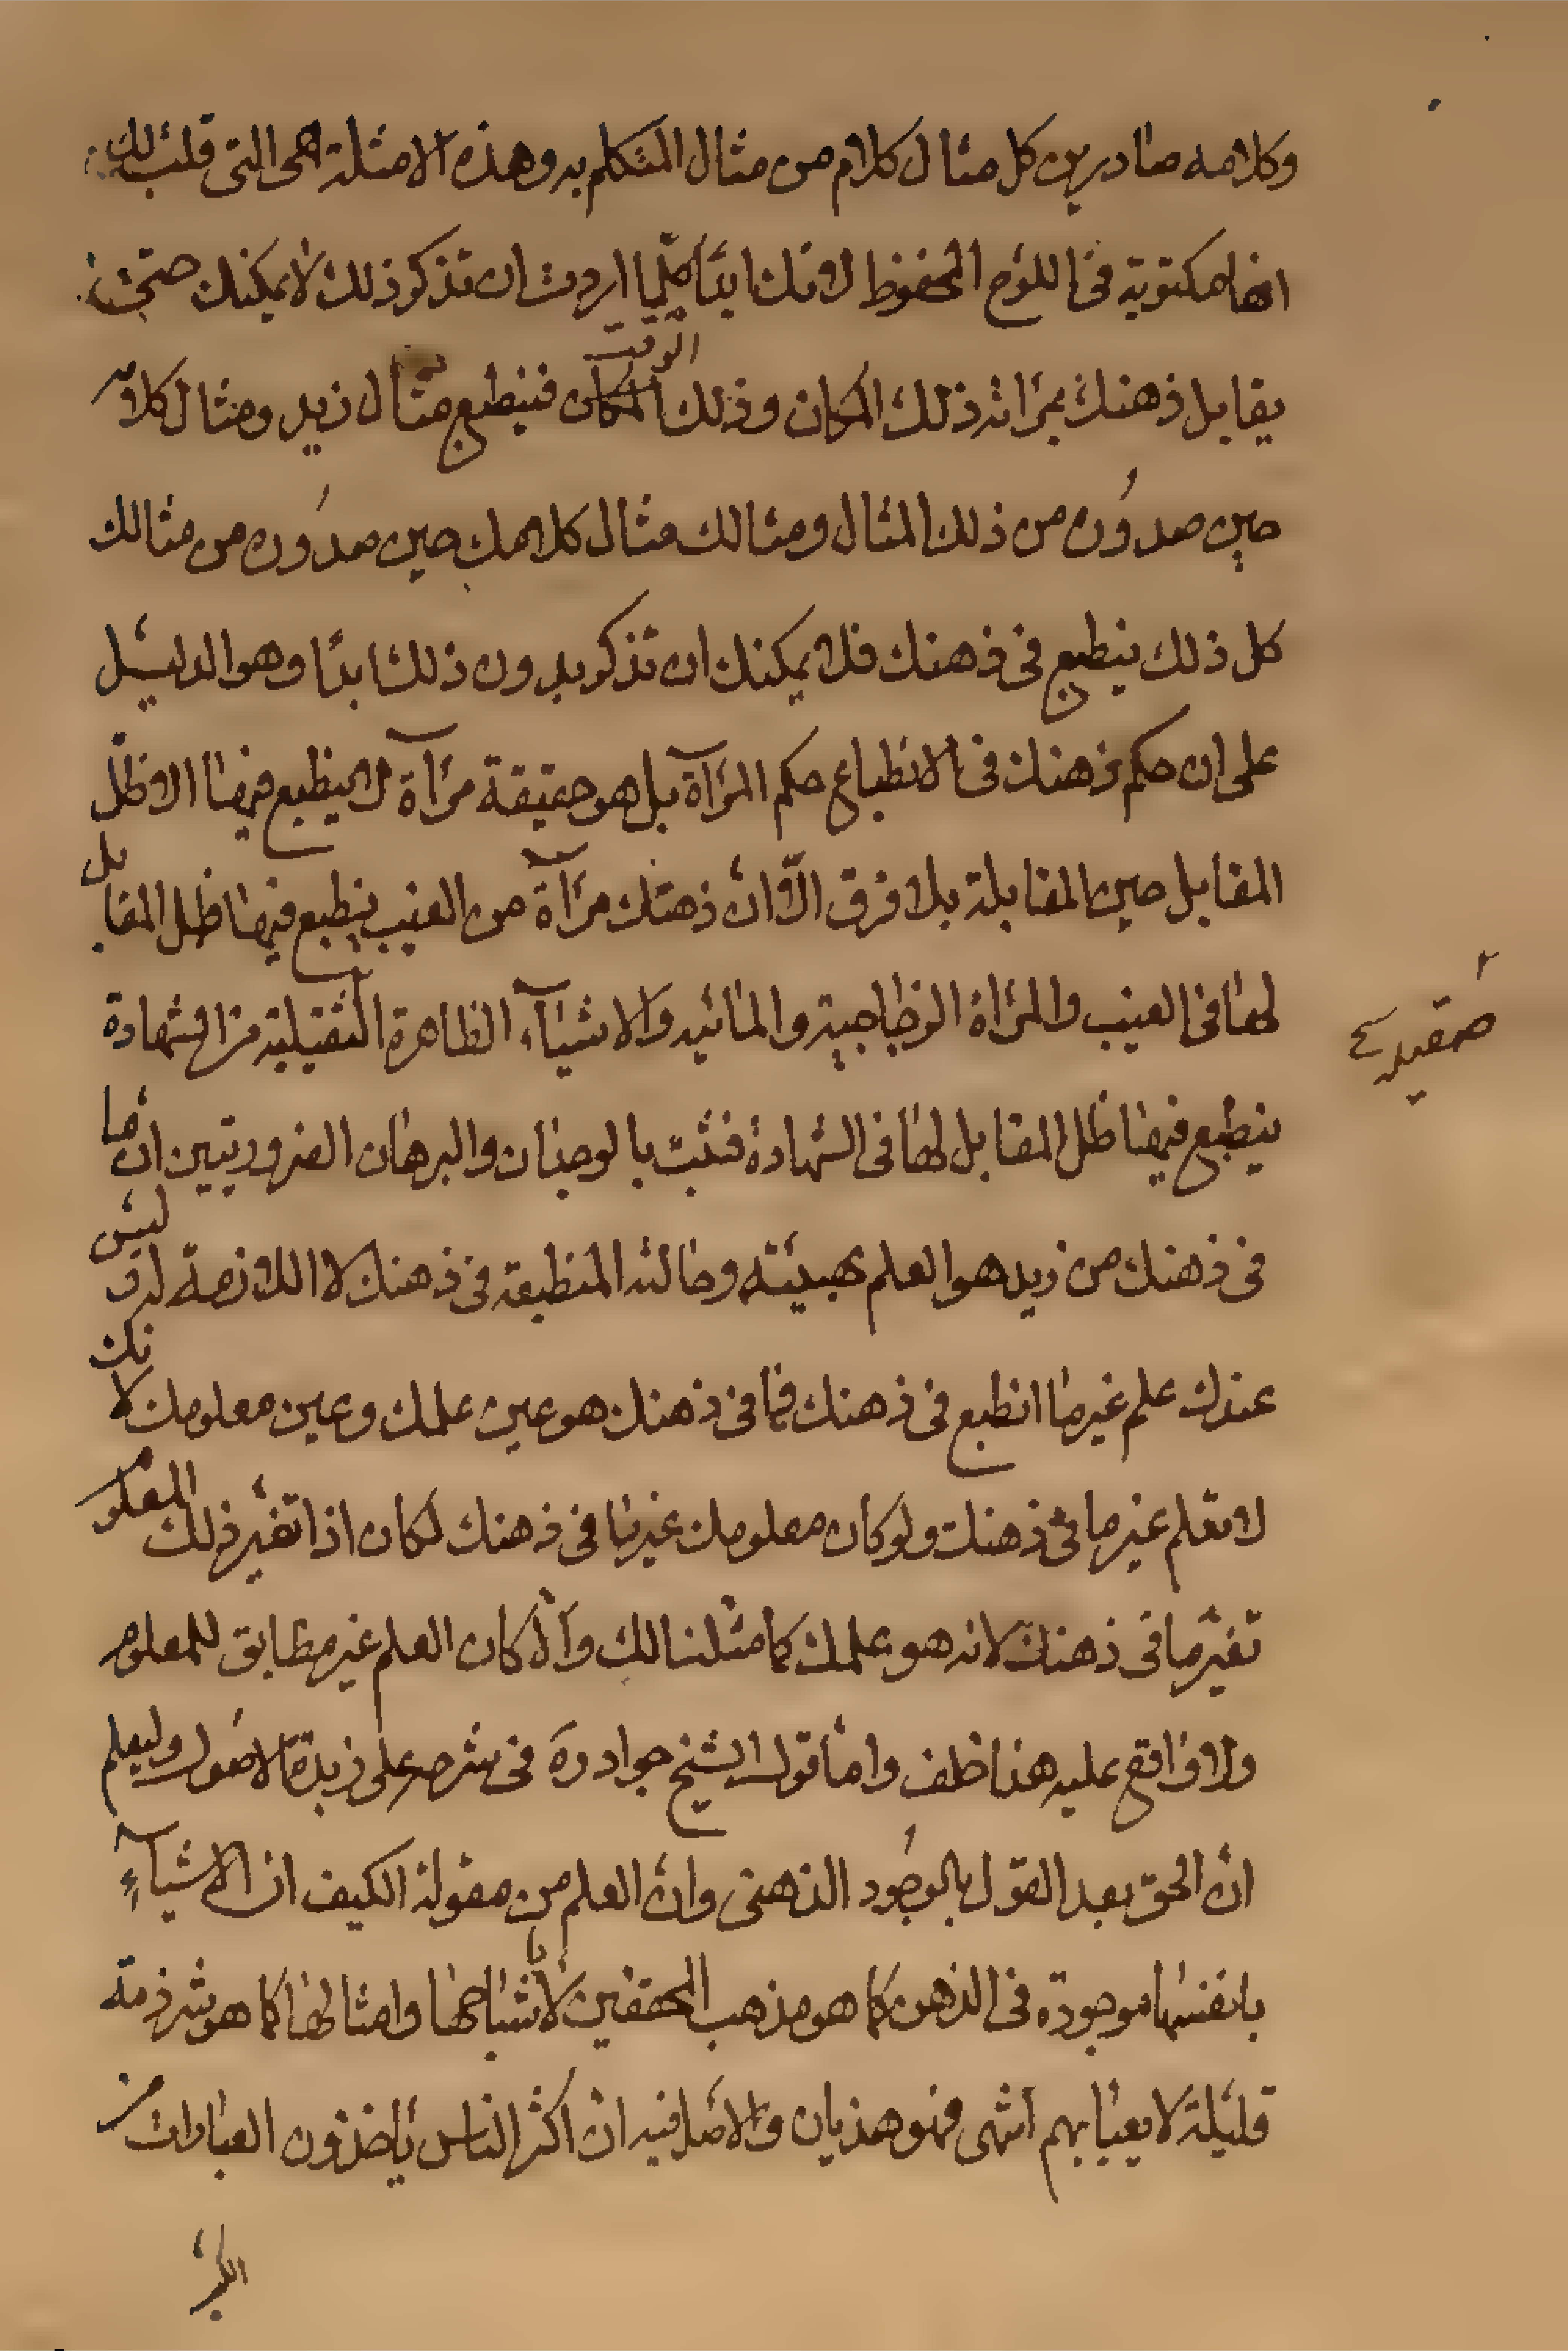 وكلامه صادرين كل مثال كلام من مثال المتكلم به وهذه الامثلة هى التى قلت لك
انها مكتوبة فى اللوح المحفوظ لانك ابدًا كلّما اردت ان تذكر ذلك لا يمكنك حتى
يقابل ذهنك بمرآته ذلك المكان وذلك الوقت فينطبع مثال زيد ومثال كلامه
حين صدوره من ذلك المثال ومثالك مثال كلامك حين صدوره من مثالك
كل ذلك ينطبع فى ذهنك فلا يمكنك ان تذكر بدون ذلك ابدًا وهو الدليل
على ان حكم ذهنك فى الانطباع حكم المرآة بل هو حقيقة مرآة لا ينطبع فيها الا ظلّ
المقابل حين المقابلة بلا فرق الّا انّ ذهنك مرآة من الغيب ينطبع فيها ظل المقابل
لها فى الغيب والمرآة الزجاجية والمائيه والاشيآء الظاهرة الثقيلية من الشهادة
صقيلة
ينطبع فيها ظل المقابل لها فى الشهادة فثبت بالوجدان والبرهان الضروريين ان ما
فى ذهنك من زيد هو العلم بهيئته وحالته المنطبعة فى ذهنك لا اللازمة له وليس
عندك علم غير ما انطبع فى ذهنك فما فى ذهنك هو عين علمك وعين معلومك لانك
لا تعلم غير ما فى ذهنك ولو كان معلومك غير ما فى ذهنك لكان اذا تغيّر ذلك المعلوم
تغيّر ما فى ذهنك لانه هو علمك كما مثلنا لك والّا كان العلم غير مطابق للمعلوم
ولا واقع عليه هذا خلف وامّا قول الشيخ جواد ره فى شرحه على زبدة الاصول وليعلم
انّ الحق بعد القول بالوجود الذهنى وانّ العلم من مقولة الكيف ان الاشيآء
بانفسها موجودة فى الذهن كما هو مذهب المحققين لا باشباحها وامثالها كما هو شرذمة
قليلة لا يعبأ بهم انتهى فهو هذيان والاصل فيه ان اكثر الناس يأخذون العبارات من